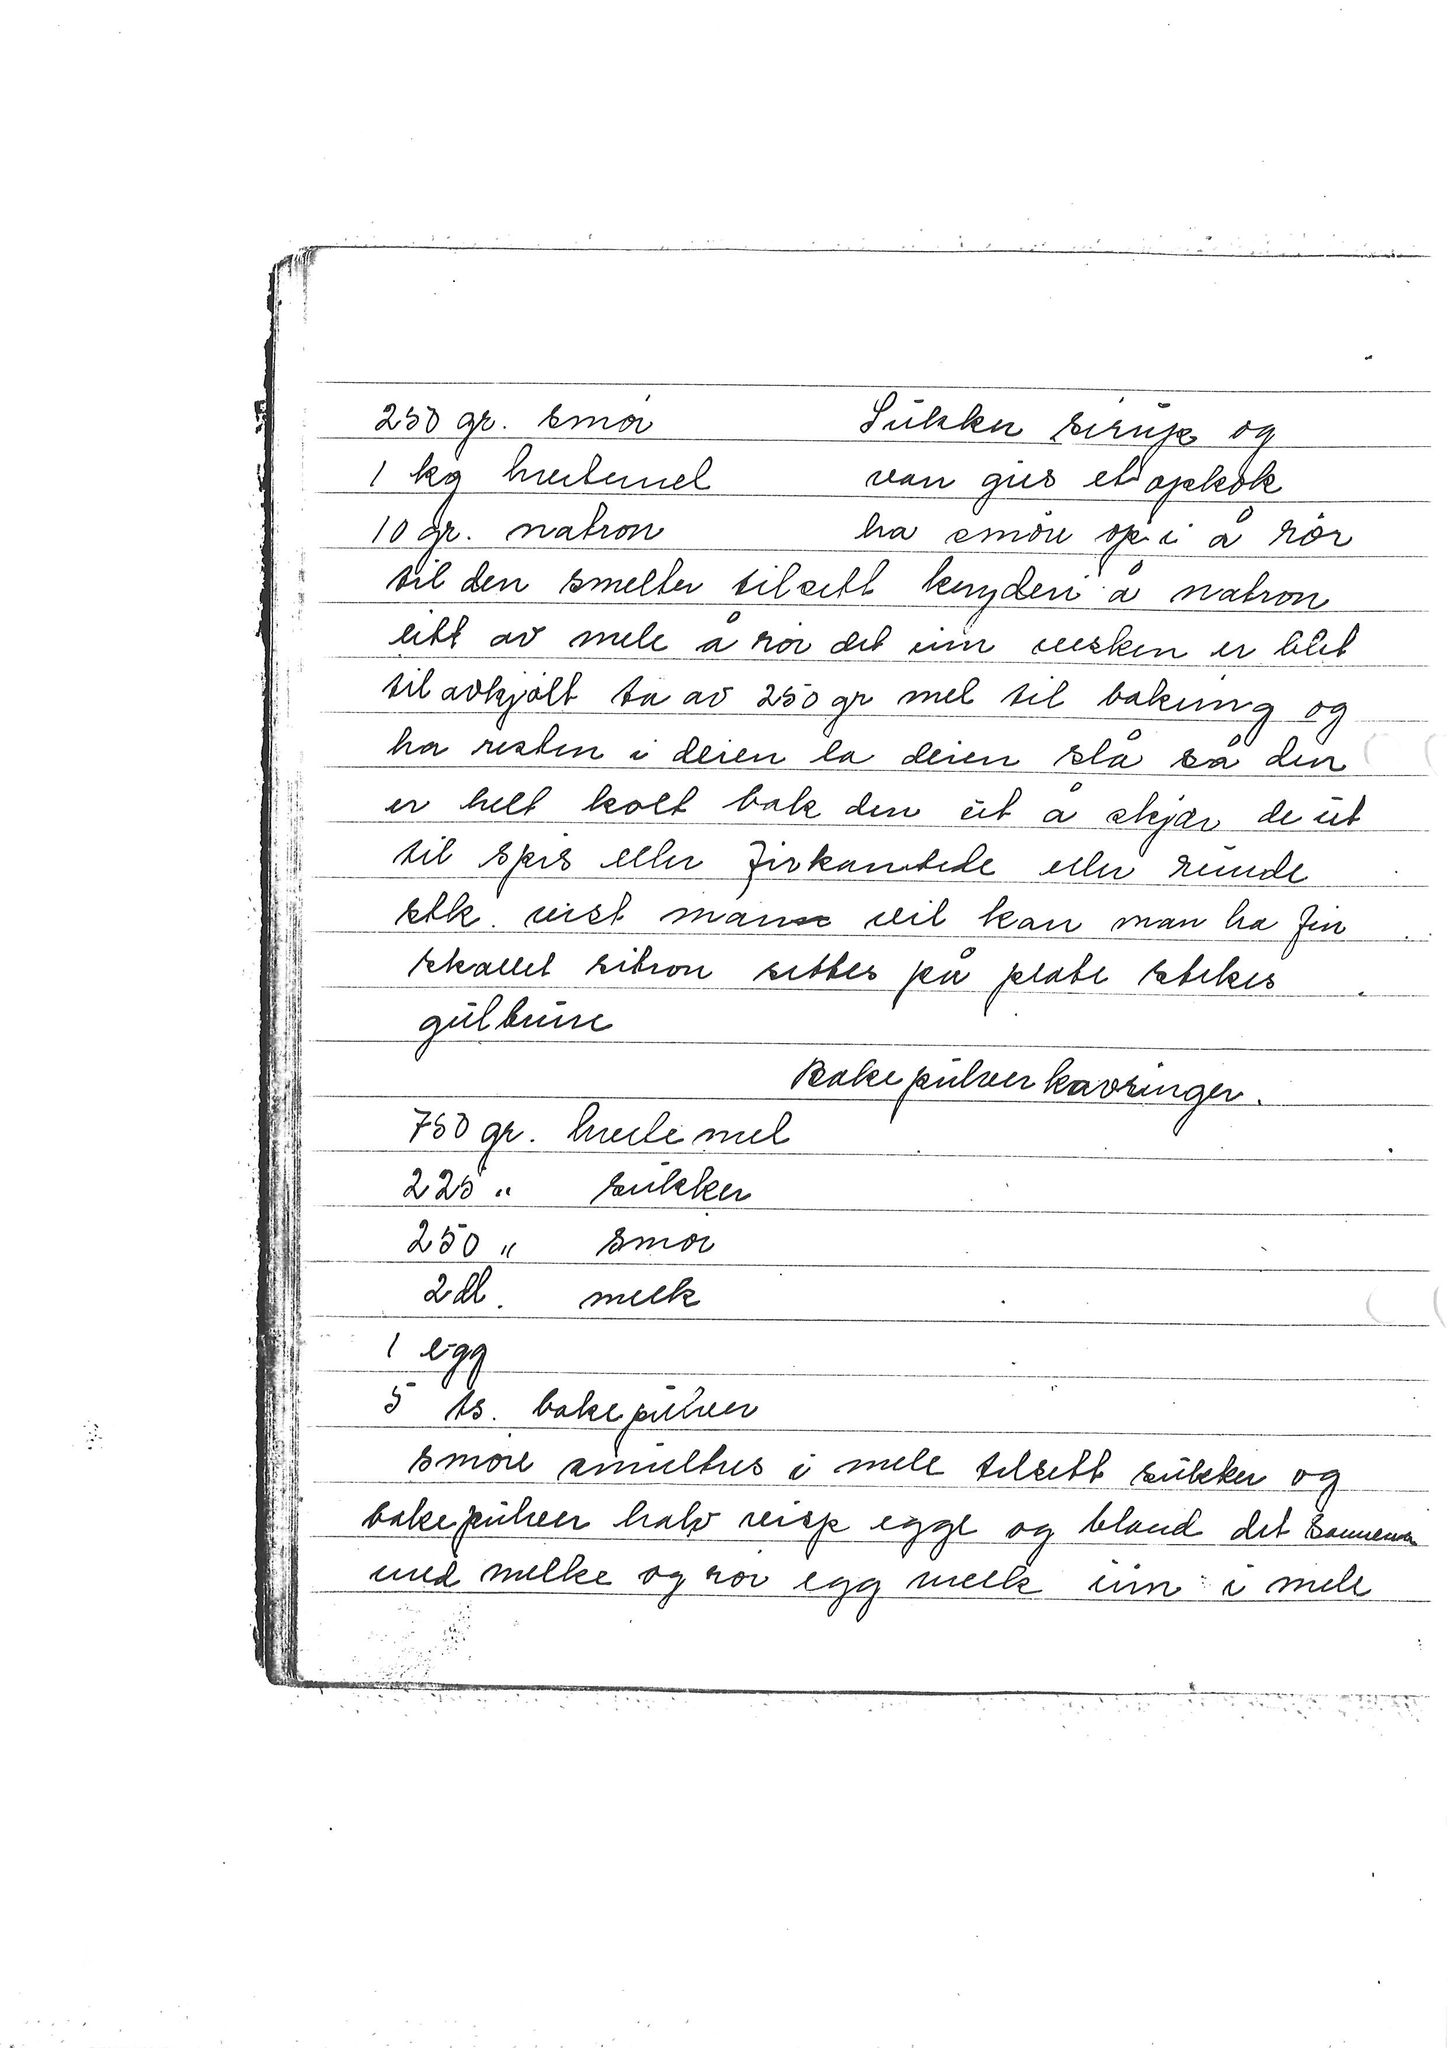 250 gr. smör
Sukker sirup og
1 kg hvetemel
van gies et opkok
10 gr. natron
ha smöre op i å rör
til den smelter tilsett krydderi å natron
litt av mele å rör det inn vesken er blit
til avkjölt ta av 250 gr mel til baking og
ha resten i deien la deien stå så den
er helt kolt bak den ut å skjær de ut
til spis eller firkantede eller runde
stk. vist man vil kan man ha fin
skallet sitron settes på plate stekes
gulbrune
Bakepulverkavringer.
750 gr. hvetemel
225 " sukker
250 " smör
2 dl. melk
1 egg
5 ts. bakepulver
smöre smultres i mele tilsett sukker og
bakepulver halv visp egge og bland det sammen
med melke og rör egg melk inn i mele